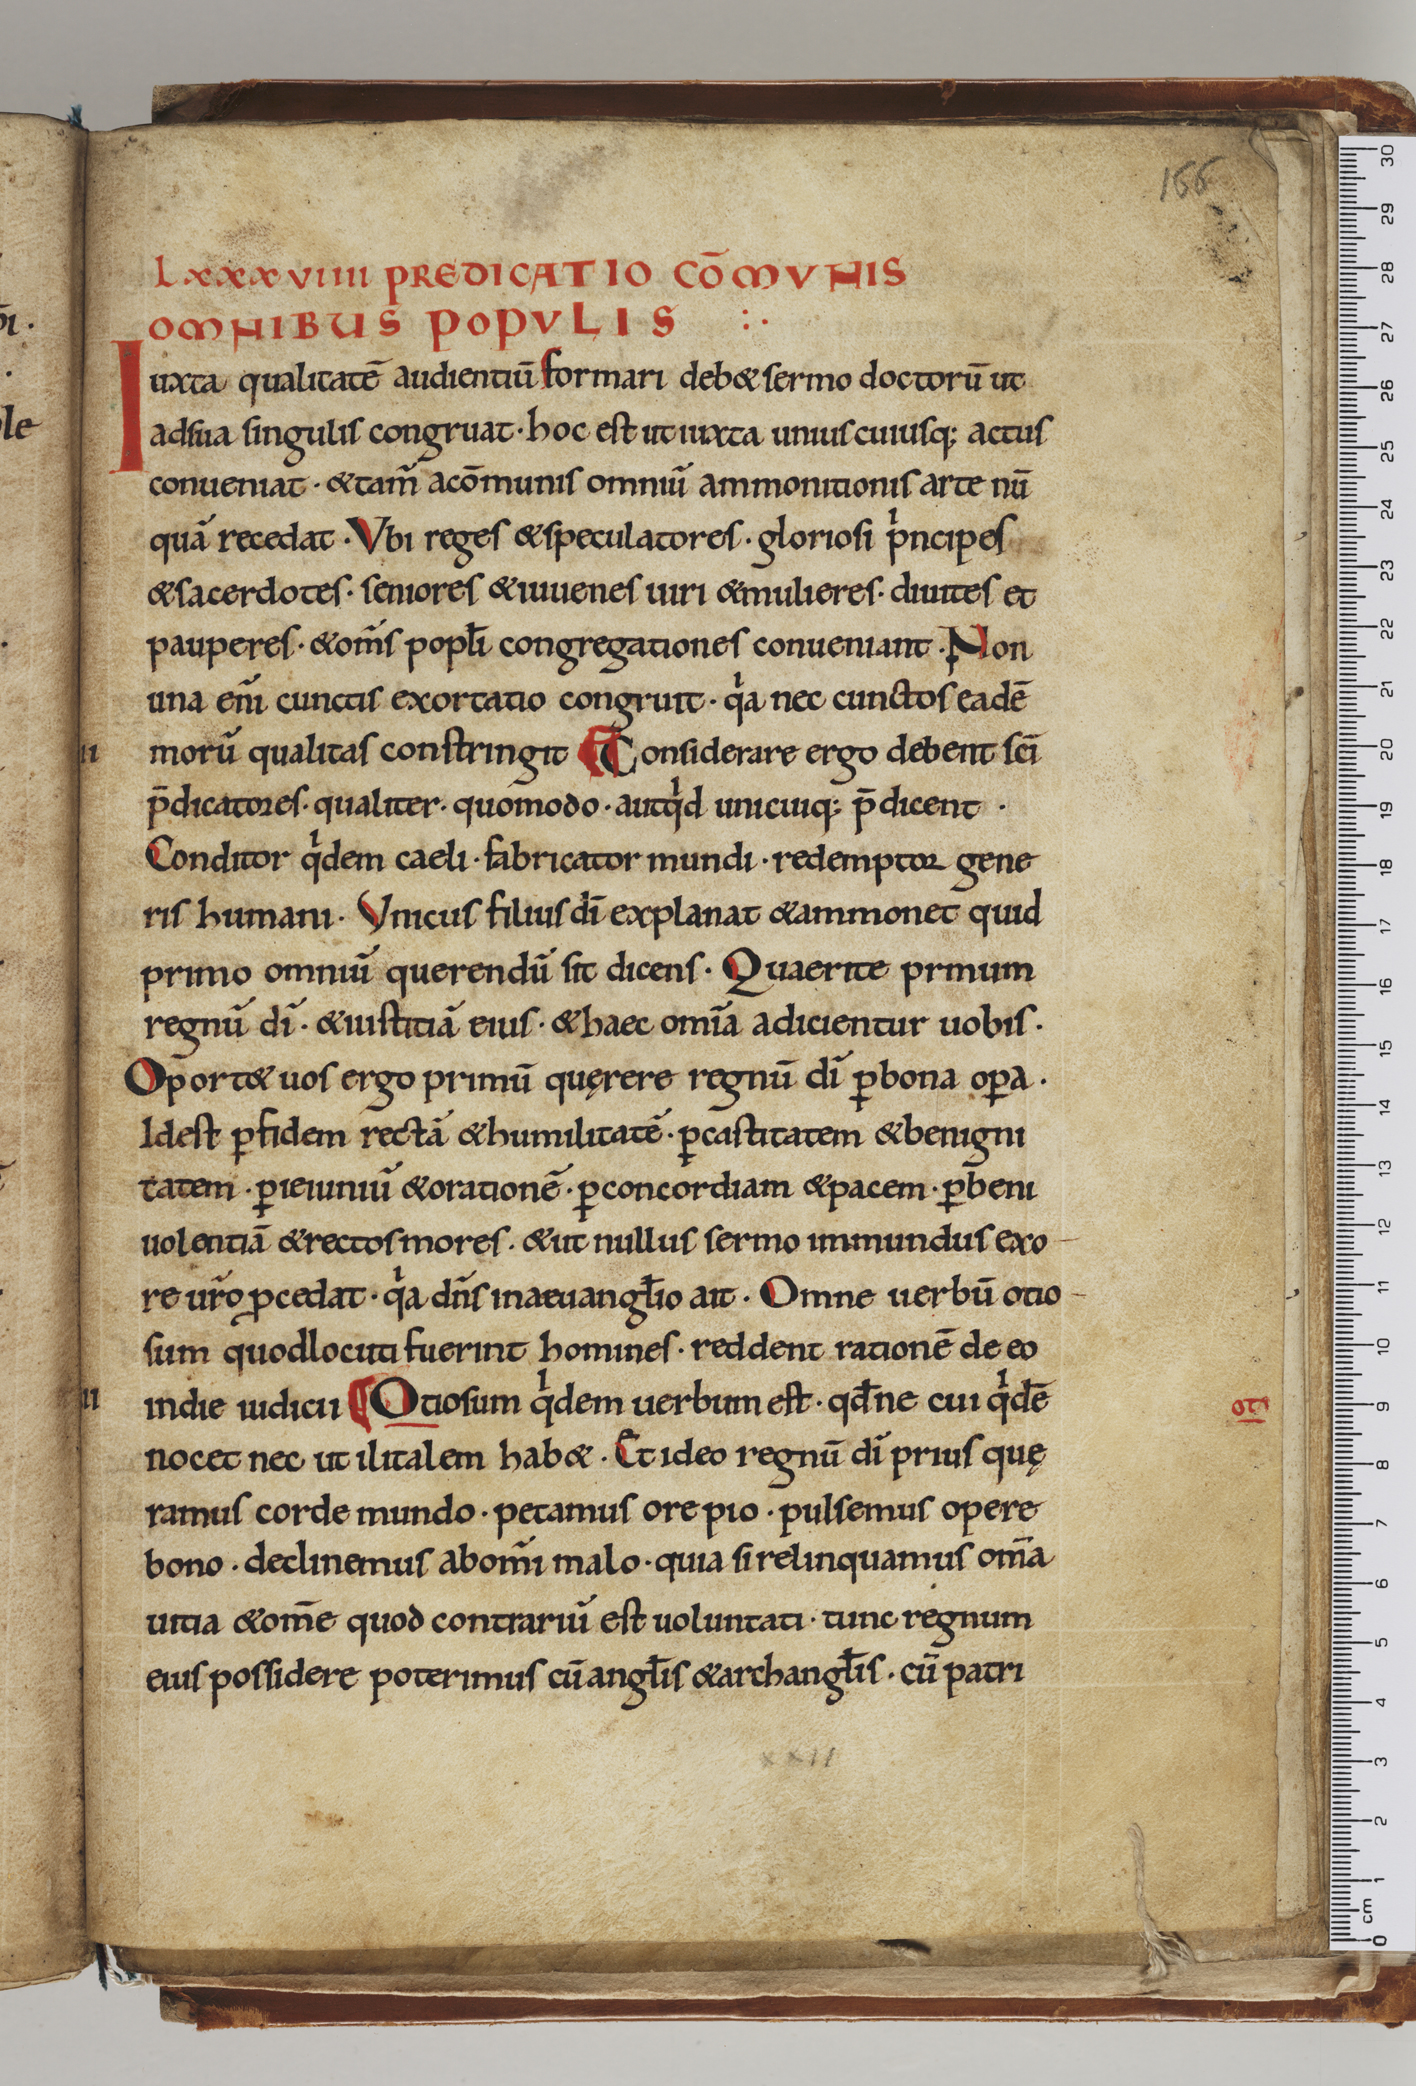 166
Lxxxviiii PREDICATIO CŌMVNIS
OMNIBUS POPVLIS :·
Iuxta qualitatē audientiū formari deb& sermo doctorū ut
adsua singulis congruat · hoc est ut iuxta uniuscuiusq; actus
conueniat · &tam̄ acōmunis omniū ammonitionis arte nū
quā recedat · Vbi reges &speculatores · gloriosi pͥncipes
&sacerdotes · seniores &iuuenes uiri &mulieres · diuites et
pauperes · &om̄s popl̄i congregationes conueniant · Non
una eni̅ cunctis exortatio congruit · qͥa nec cunctos eadē
morū qualitas constringit Considerare ergo debent sc̄i
p̄dicatores · qualiter · quomodo · autqͥd unicuiq; p̄dicent ·
Conditor qͥdem caeli · fabricator mundi · redemptor gene
ris humani · Vnicus filius dī explanat &ammonet quid
primo omniū querendū sit dicens · Quaerite prmum
regnū dī · &iustitiā eius · &haec omīa adicientur uobis ·
Oport& uos ergo primū quęrere regnū dī ꝑbona oꝑa ·
Idest ꝑfidem rectā &humilitatē · ꝑcastitatem &benigni
tatem · ꝑieiuniū &orationē · ꝑconcordiam &pacem · ꝑbeni
uolentiā &rectos mores · &ut nullus sermo immundus exo
re ur̄o ꝓcedat · qͥa dn̄s inaeuangl̄io ait · Omne uerbū otio
sum quodlocuti fuerint homines · reddent rationē de eo
indie iudicii Otiosum qͥdem uerbum est · qd̄ne cui qͥdē
nocet nec ut ilitalem hab& · Et ideo regnū dī prius quę
ramus corde mundo · petamus ore pio · pulsemus opere
bono · declinemus abom̄i malo · quia si relinquamus om̄a
uitia &om̄e quod contrariū est uoluntati · tunc regnum
eius possidere poterimus cū angl̄is &archangl̄is · cū patri
xxII